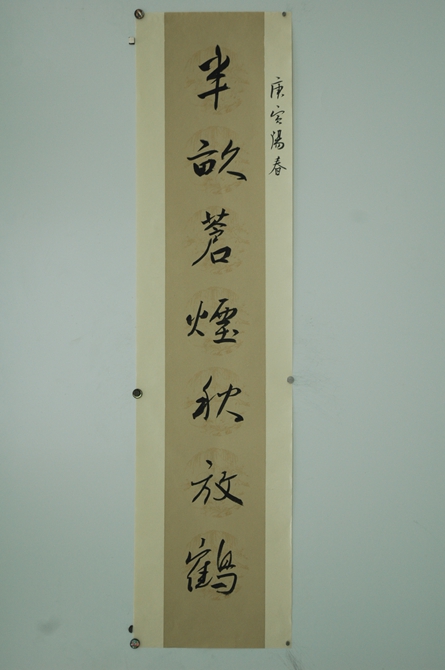 庚寅陽春
半畝蒼煙秋放鶴